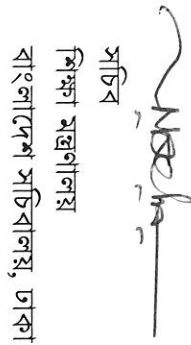 সচিব
শিক্ষা মন্ত্রণালয়
বাংলাদেশ সচিবালয়, ঢাকা